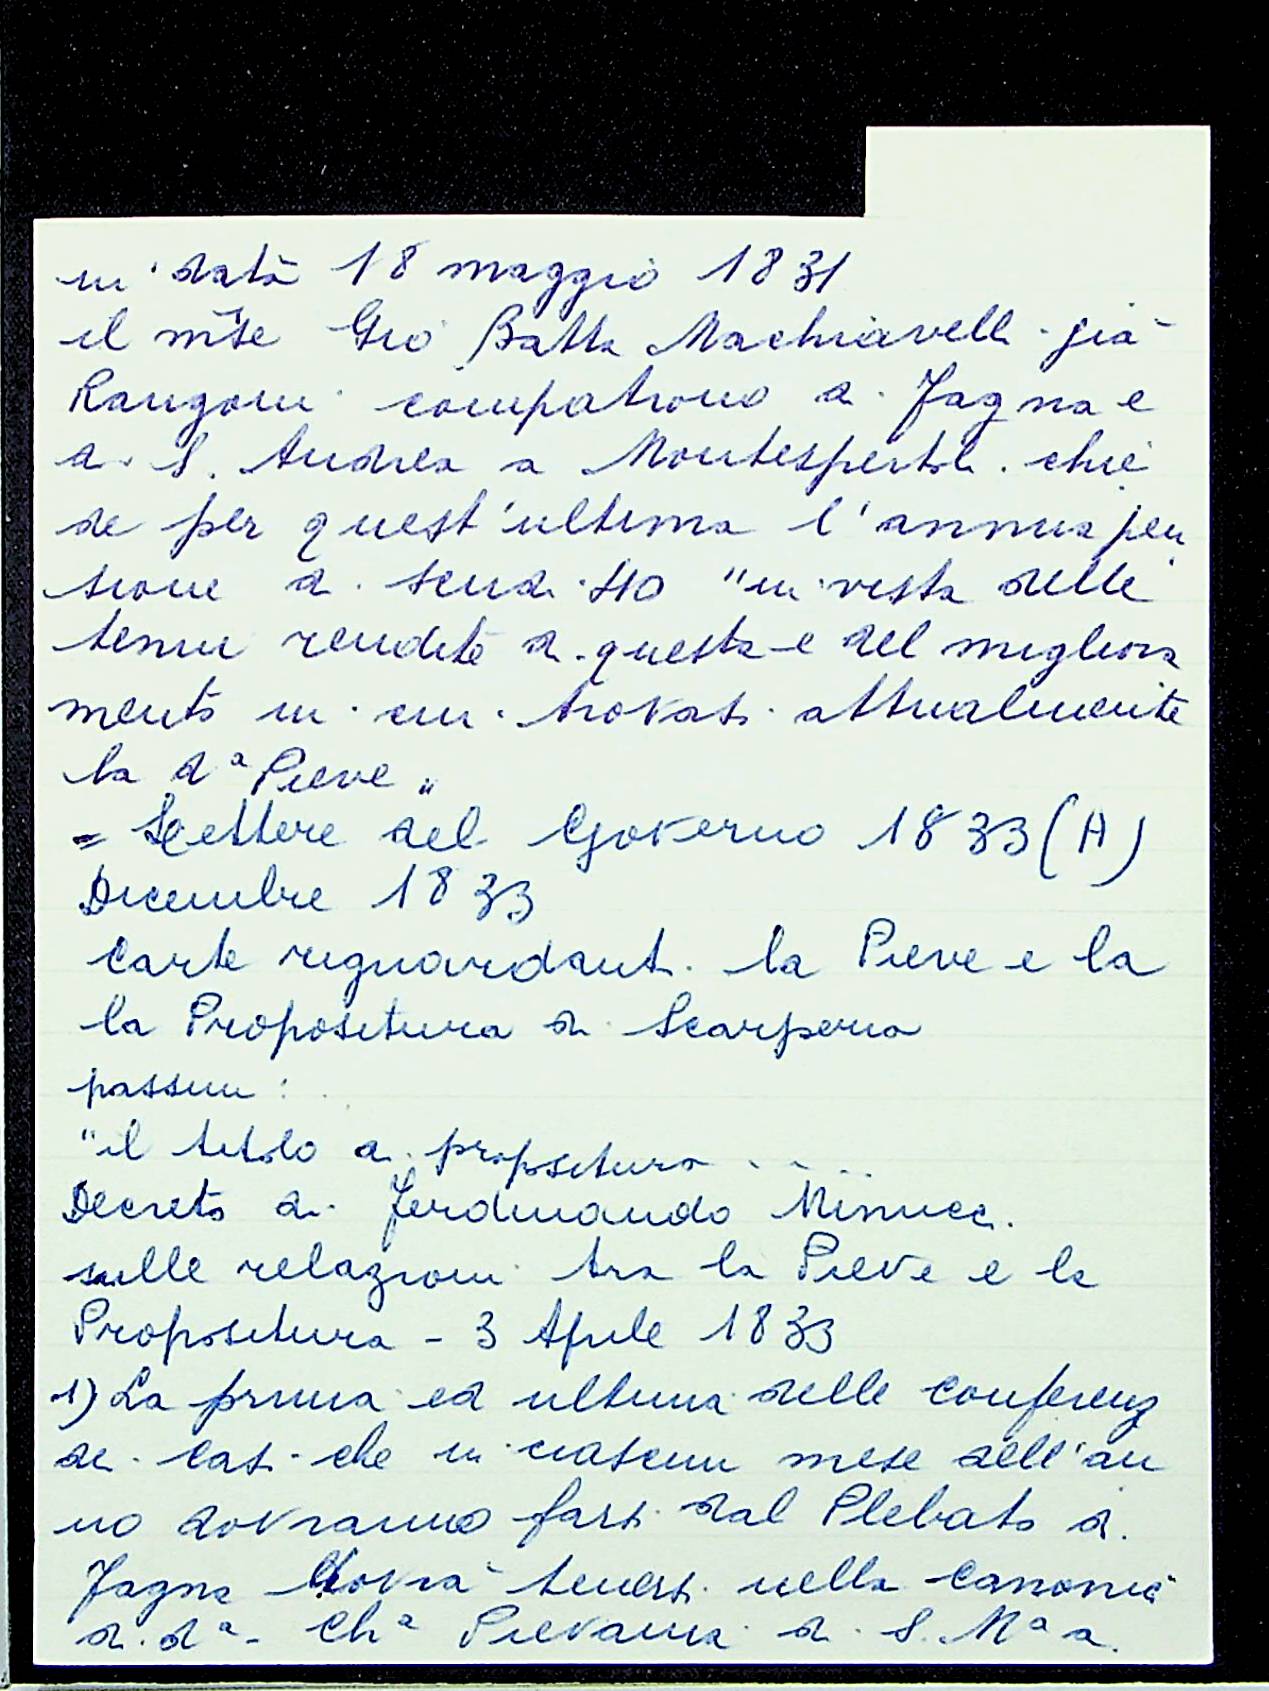 in data 18 maggio 1831
il m̃se Gio Batta Machiavelli già
Rangoni compatrono di Fagna e
di S. Andrea a Montespertoli chie
de per quest'ultima l'annua pen
sione di scudi 40 "in vista delle
tenui rendite di questa e del migliora
mento in cui trovasi attualmente
la dᵃ Pieve"
= Lettere del Governo 1833 (A)
Dicembre 1833
Carte riguardanti la Pieve e la
la Propositura di Scarperia
passim:
"il titolo di propositura .....
Decreto di Ferdinando Minucci
sulle relazioni tra la Pieve e la
Propositura - 3 Aprile 1833
1) La prima ed ultima delle conferenz
di casi che in ciascun mese dell'an
no dovranno farsi dal Plebato di
Fagna dovrà tenersi nella canonic
di dᵃ Chᵃ Pievania di S. Mᵃ a